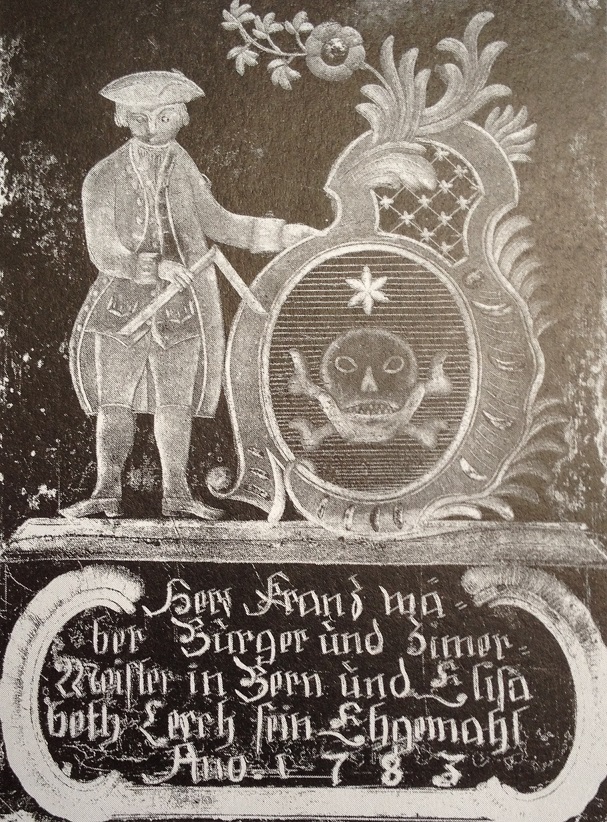 Herr Franz wä-
ber Bürger und Zimer-
Meister in Bern und Elisa
beth Lerch sein Ehgemahl
Ano. 1783